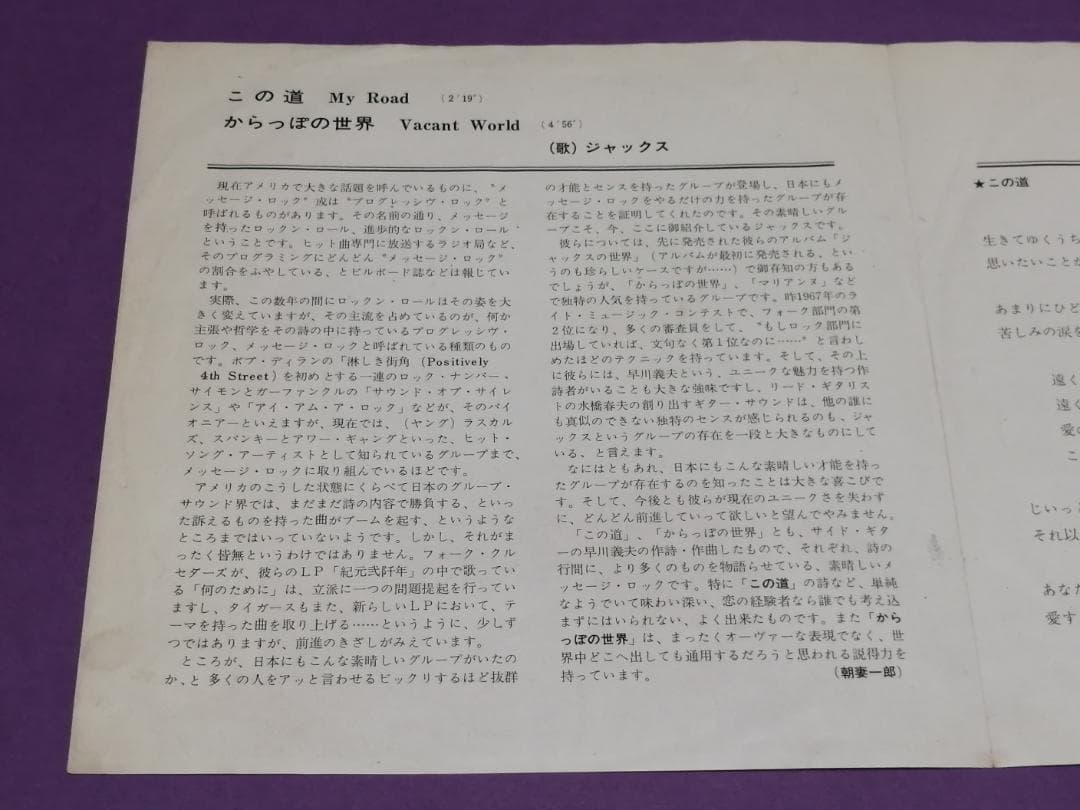 この道　My Road　(2′19″)
からっぽの世界　Vacant World　(4′56″)
(歌) ジャックス
現在アメリカで大きな話題を呼んでいるものに、〝メ
ッセージ・ロック〟或は〝プログレッシヴ・ロック〟と
呼ばれるものがあります。その名前の通り、メッセージ
を持ったロックン・ロール、進歩的なロックン・ロール
ということです。ヒット曲専門に放送するラジオ局など、
そのプログラミングにどんどん〝メッセージ・ロック〟
の割合をふやしている、とビルボード誌などは報じてい
ます。
実際、この数年の間にロックン・ロールはその姿を大
きく変えていますが、その主流を占めているのが、何か
主張や哲学をその詩の中に持っているプログレッシヴ・
ロック、メッセージ・ロックと呼ばれている種類のもの
です。ボブ・ディランの「淋しき街角 (Positively
4th Street) を初めとする一連のロック・ナンバー、
サイモンとガーファンクルの「サウンド・オブ・サイレ
ンス」や「アイ・アム・ア・ロック」などが、そのパイ
オニアーといえますが、現在では、(ヤング) ラスカル
ズ、スパンキーとアワー・ギャングといった、ヒット・
ソング・アーティストとして知られているグループまで、
メッセージ・ロックに取り組んでいるほどです。
アメリカのこうした状態にくらべて日本のグループ・
サウンド界では、まだまだ詩の内容で勝負する、といっ
た訴えるものを持った曲がブームを起す、というような
ところまではいっていないようです。しかし、それがま
ったく皆無というわけではありません。フォーク・クル
セダーズが、彼らのLP「紀元弐阡年」の中で歌ってい
る「何のために」は、立派に一つの問題提起を行ってい
ますし、タイガースもまた、新らしいLPにおいて、テ
ーマを持った曲を取り上げる……というように、少しず
つではありますが、前進のきざしがみえています。
ところが、日本にもこんな素晴しいグループがいたの
か、と多くの人をアッと言わせるビックリするほど抜群
の才能とセンスを持ったグループが登場し、日本にもメ
ッセージ・ロックをやるだけの力を持ったグループが存
在することを証明してくれたのです。その素晴しいグル
ープこそ、今、ここに御紹介しているジャックスです。
彼らについては、先に発売された彼らのアルバム「ジ
ャックスの世界」(アルバムが最初に発売される、とい
うのも珍らしいケースですが……) で御存知の方もある
でしょうが、「からっぽの世界」、「マリアンヌ」など
で独特の人気を持っているグループです。昨1967年のラ
イト・ミュージック・コンテストで、フォーク部門の第
2位になり、多くの審査員をして、〝もしロック部門に
出場していれば、文句なく第1位なのに……〟と言わし
めたほどのテクニックを持っています。そして、その上
に彼らには、早川義夫という、ユニークな魅力を持つ作
詩者がいることも大きな強味ですし、リード・ギタリス
トの水橋春夫の創り出すギター・サウンドは、他の誰に
も真似のできない独特のセンスが感じられるのも、ジャ
ックスというグループの存在を一段と大きなものにして
いる、と言えます。
なにはともあれ、日本にもこんな素晴しい才能を持っ
たグループが存在するのを知ったことは大きな喜こびで
す。そして、今後とも彼らが現在のユニークさを失わず
に、どんどん前進していって欲しいと望んでやみません。
「この道」、「からっぽの世界」とも、サイド・ギタ
ーの早川義夫の作詩・作曲したもので、それぞれ、詩の
行間に、より多くのものを物語らせている、素晴しいメ
ッセージ・ロックです。特に「この道」の詩など、単純
なようでいて味わい深い、恋の経験者なら誰でも考え込
まずにはいられない、よく出来たものです。また「から
っぽの世界」は、まったくオーヴァーな表現でなく、世
界中どこへ出しても通用するだろうと思われる説得力を
持っています。
(朝妻一郎)
★この道
生きてゆくうち
思いたいことが
あまりにひど
苦しみの涙を
遠く
遠く
愛の
こ
じいっ
それ以
あな
愛す